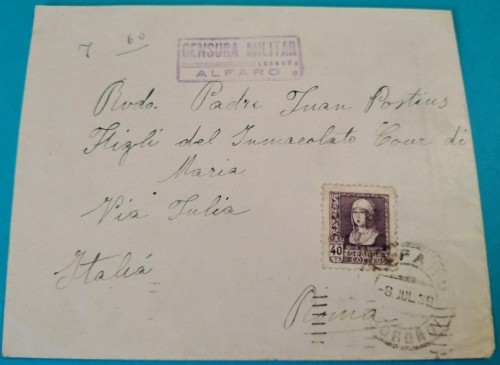 7 60
CENSURA MILITAR
LOGROÑO
ALFARO
Rvdo. Padre Juan Postius
Fligli del Inmacolato Cour di
Maria
Via Julia
Italiá
Roma
40
ESPAÑA
CORREOS
ALFARO
-8 JUL.38
LOGROÑO